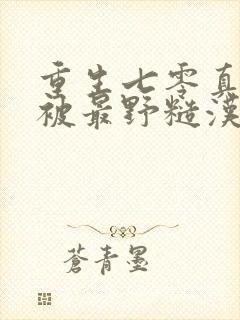 重生七零真
被最野糙漢
蒼青墨